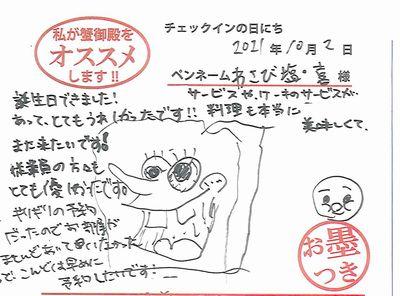 私が蟹御殿を
オススメ
します!!
チェックインの日にち
2021年10月2日
ペンネーム わさび塩・喜 様
誕生日できました!
サービスや、ケーキのサービスが
あって、とてもうれしかったです!! 料理も本当に
美味しくて、
また来たいです!
従業員の方々も
とても優しかったです。
ぎりぎりの予約
だったのでお部屋が
こんどは早めに
予約したいです!
お墨
つき